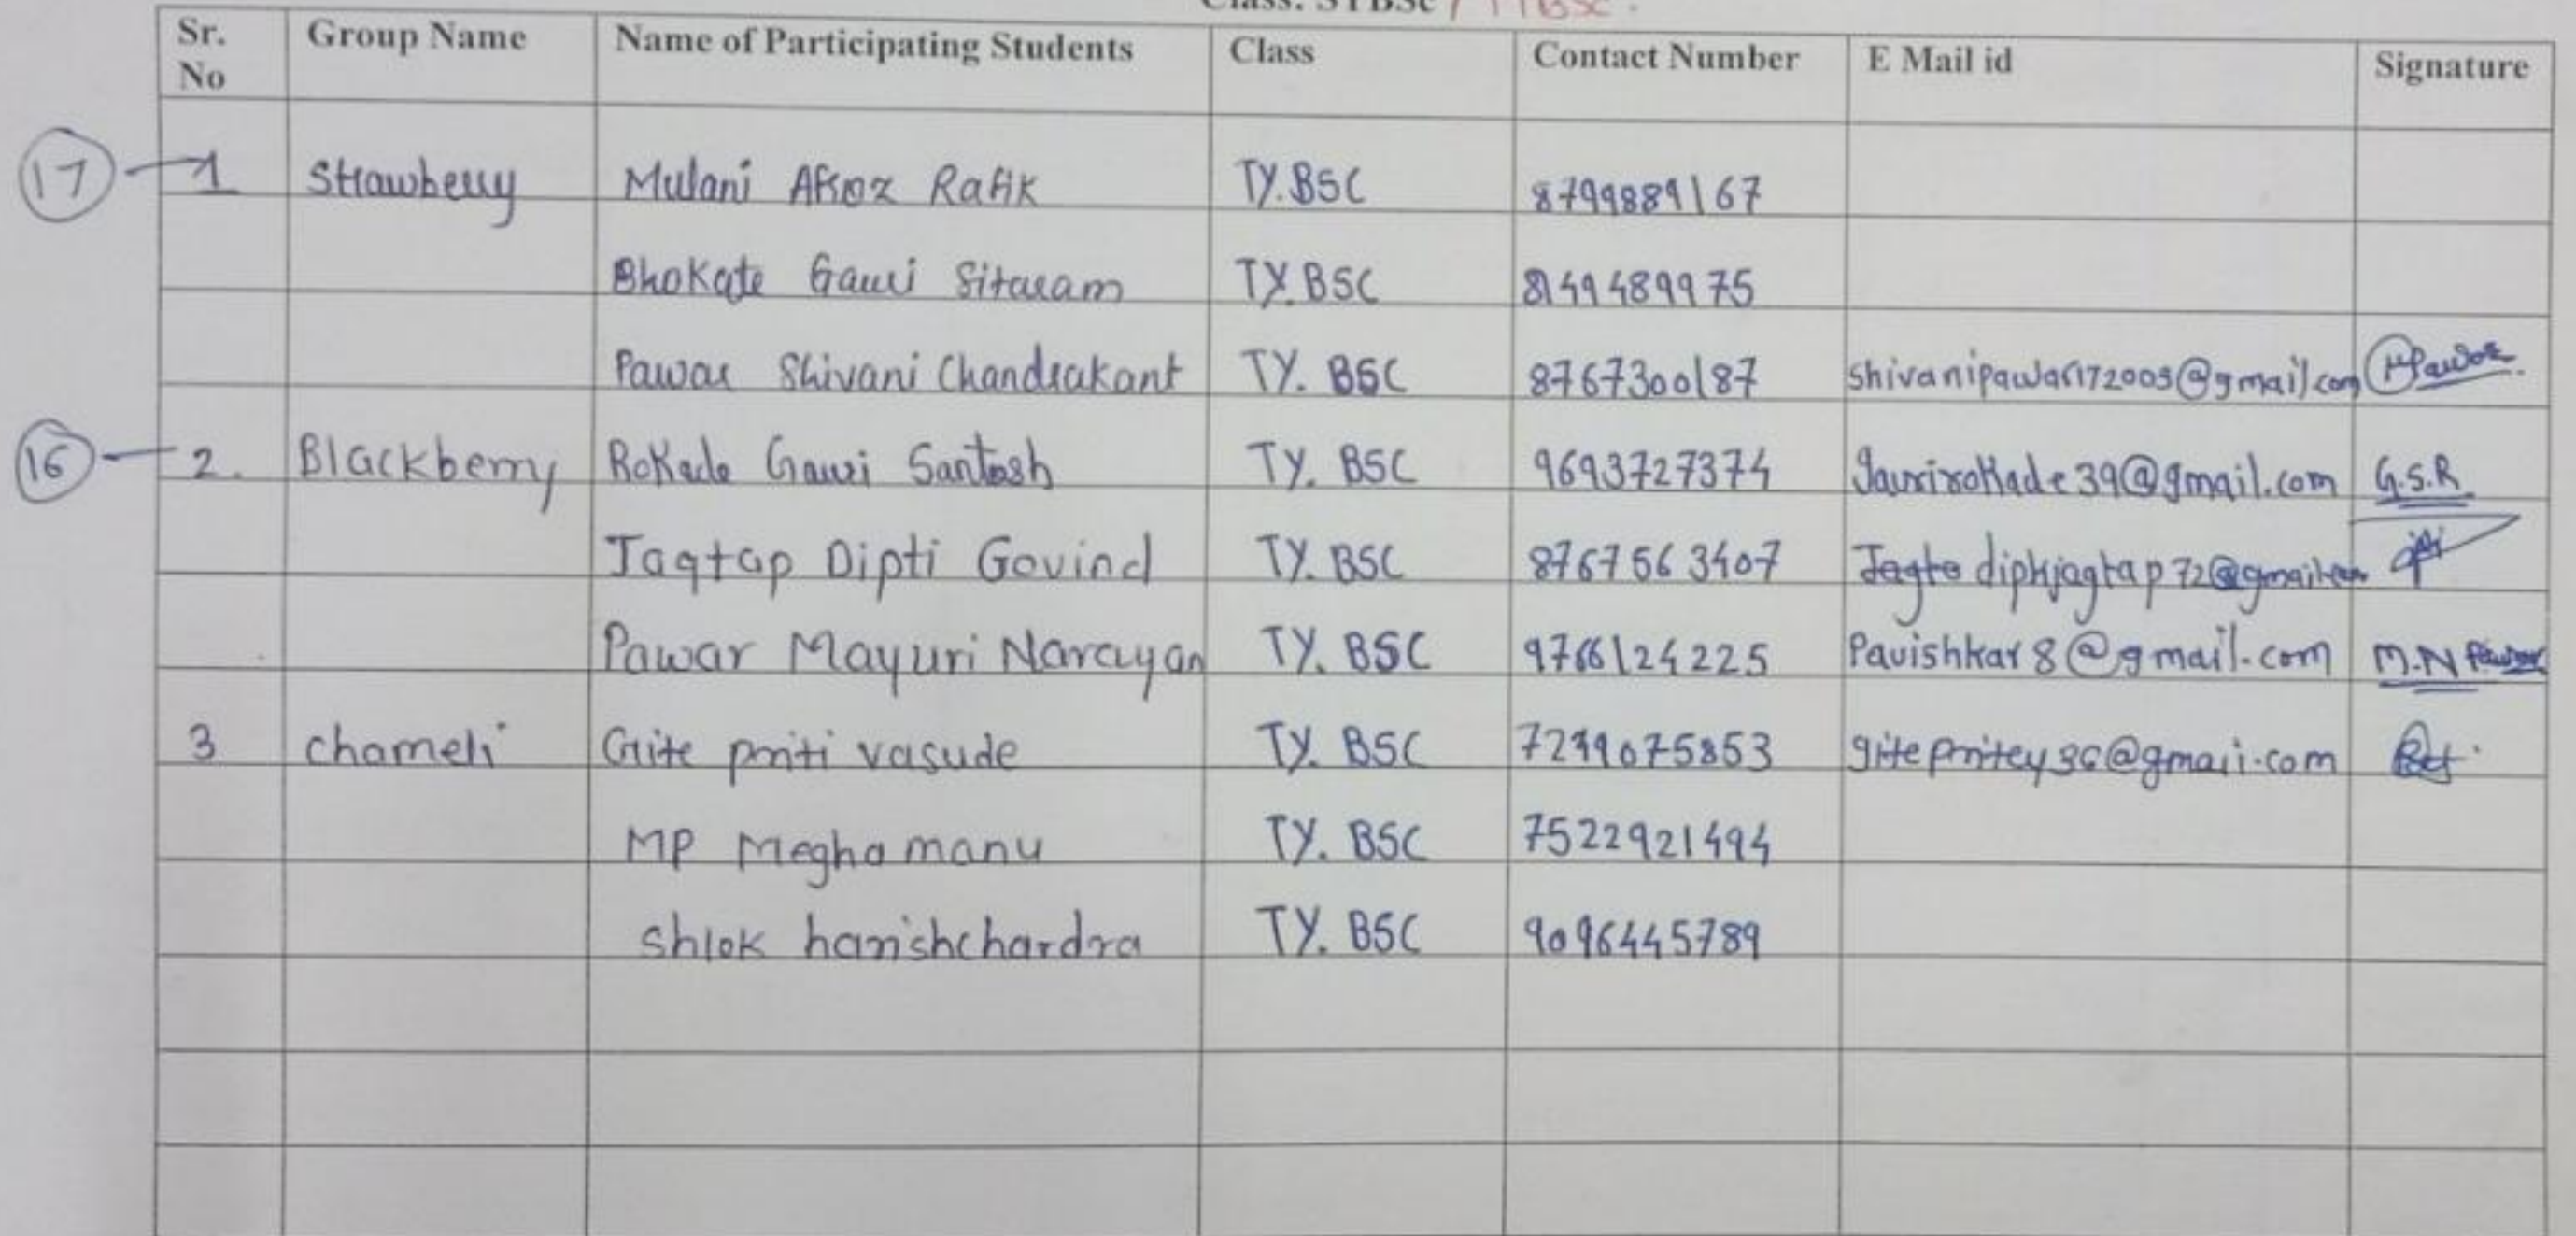 Class: SYBSc / TYBSc.
Sr. No Group Name Name of Participating Students Class Contact Number E Mail id Signature
17 1 Strawberry Mulani Afroz Rafik TY.BSC 8799889167
Bhokate Gauri Sitaram TY.BSC 8149489975
Pawar Shivani Chandrakant TY. BSC 8767300187 shivanipawar172005@gmail.com Pawar
16 2. Blackberry Rokade Gauri Santosh TY. BSC 9693727374 gaurirokade39@gmail.com G.S.R
Jagtap Dipti Govind TY. BSC 8767563407 diptijagtap72@gmail.com
Pawar Mayuri Narayan TY. BSC 9766124225 Pavishkar8@gmail.com M.N Pawar
3 chameli Gite priti vasude TY. BSC 7249075853 gitepritey36@gmail.com
MP Megha manu TY. BSC 7522921494
Shlok harishchardra TY. BSC 9096445789